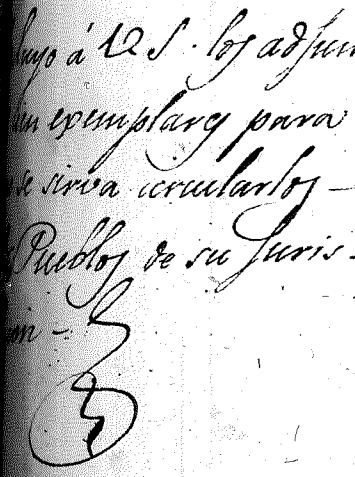 á V S. los adjun
exemplares para
se sirva circularlos
Pueblos de su Juris-